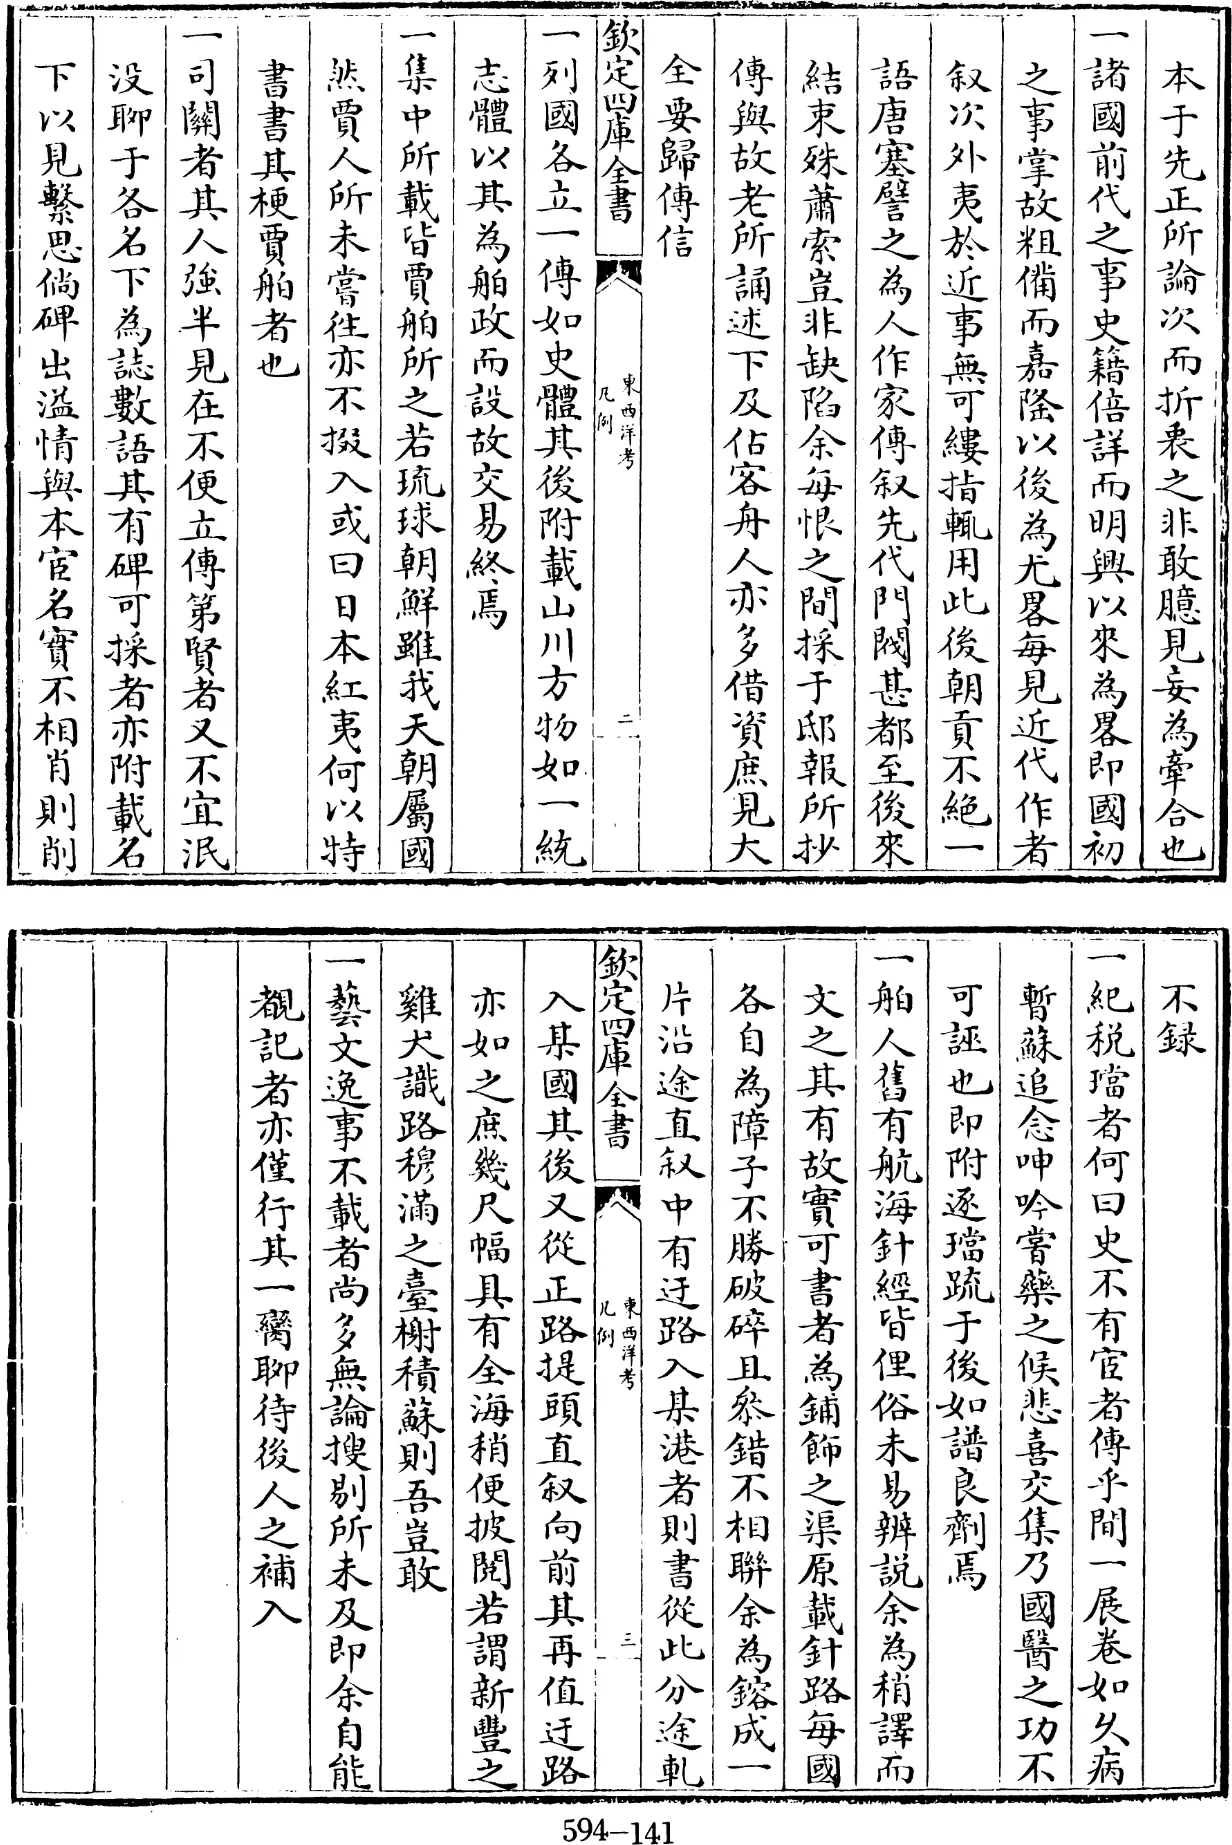 本于先正所論次而折衷之非敢臆見妄為牽合也
一諸國前代之事史籍倍詳而明興以來為畧即國初
之事掌故粗備而嘉隆以後為尤畧每見近代作者
叙次外夷於近事無可縷指輒用此後朝貢不絶一
語唐塞譬之為人作家傳叙先代門閥甚都至後來
結束殊蕭索豈非缺陷余每恨之間採于邸報所抄
傳與故老所誦述下及估客舟人亦多借資庶見大
全要歸傳信
欽定四庫全書
東西洋考
凡例
二
一列國各立一傳如史體其後附載山川方物如一統
志體以其為舶政而設故交易終焉
一集中所載皆賈舶所之若琉球朝鮮雖我天朝屬國
然賈人所未嘗徃亦不掇入或曰日本紅夷何以特
書書其梗賈舶者也
一司關者其人強半見在不便立傳第賢者又不宜泯
沒聊于各名下為誌數語其有碑可採者亦附載名
下以見繫思倘碑出溢情與本宦名實不相肖則削
不録
一紀税璫者何曰史不有宦者傳乎間一展卷如久病
暫蘇追念呻吟嘗藥之候悲喜交集乃國醫之功不
可誣也即附逐璫疏于後如譜良劑焉
一舶人舊有航海針經皆俚俗未易辨説余為稍譯而
文之其有故實可書者為鋪飾之渠原載針路每國
各自為障子不勝破碎且叅錯不相聯余為鎔成一
片沿途直叙中有迂路入某港者則書從此分途軋
欽定四庫全書
東西洋考
凡例
三
入某國其後又從正路提頭直叙向前其再值迂路
亦如之庶幾尺幅具有全海稍便披閱若謂新豐之
雞犬識路穆滿之臺榭積蘇則吾豈敢
一藝文逸事不載者尚多無論搜剔所未及即余自能
覩記者亦僅行其一臠聊待後人之補入
594-141